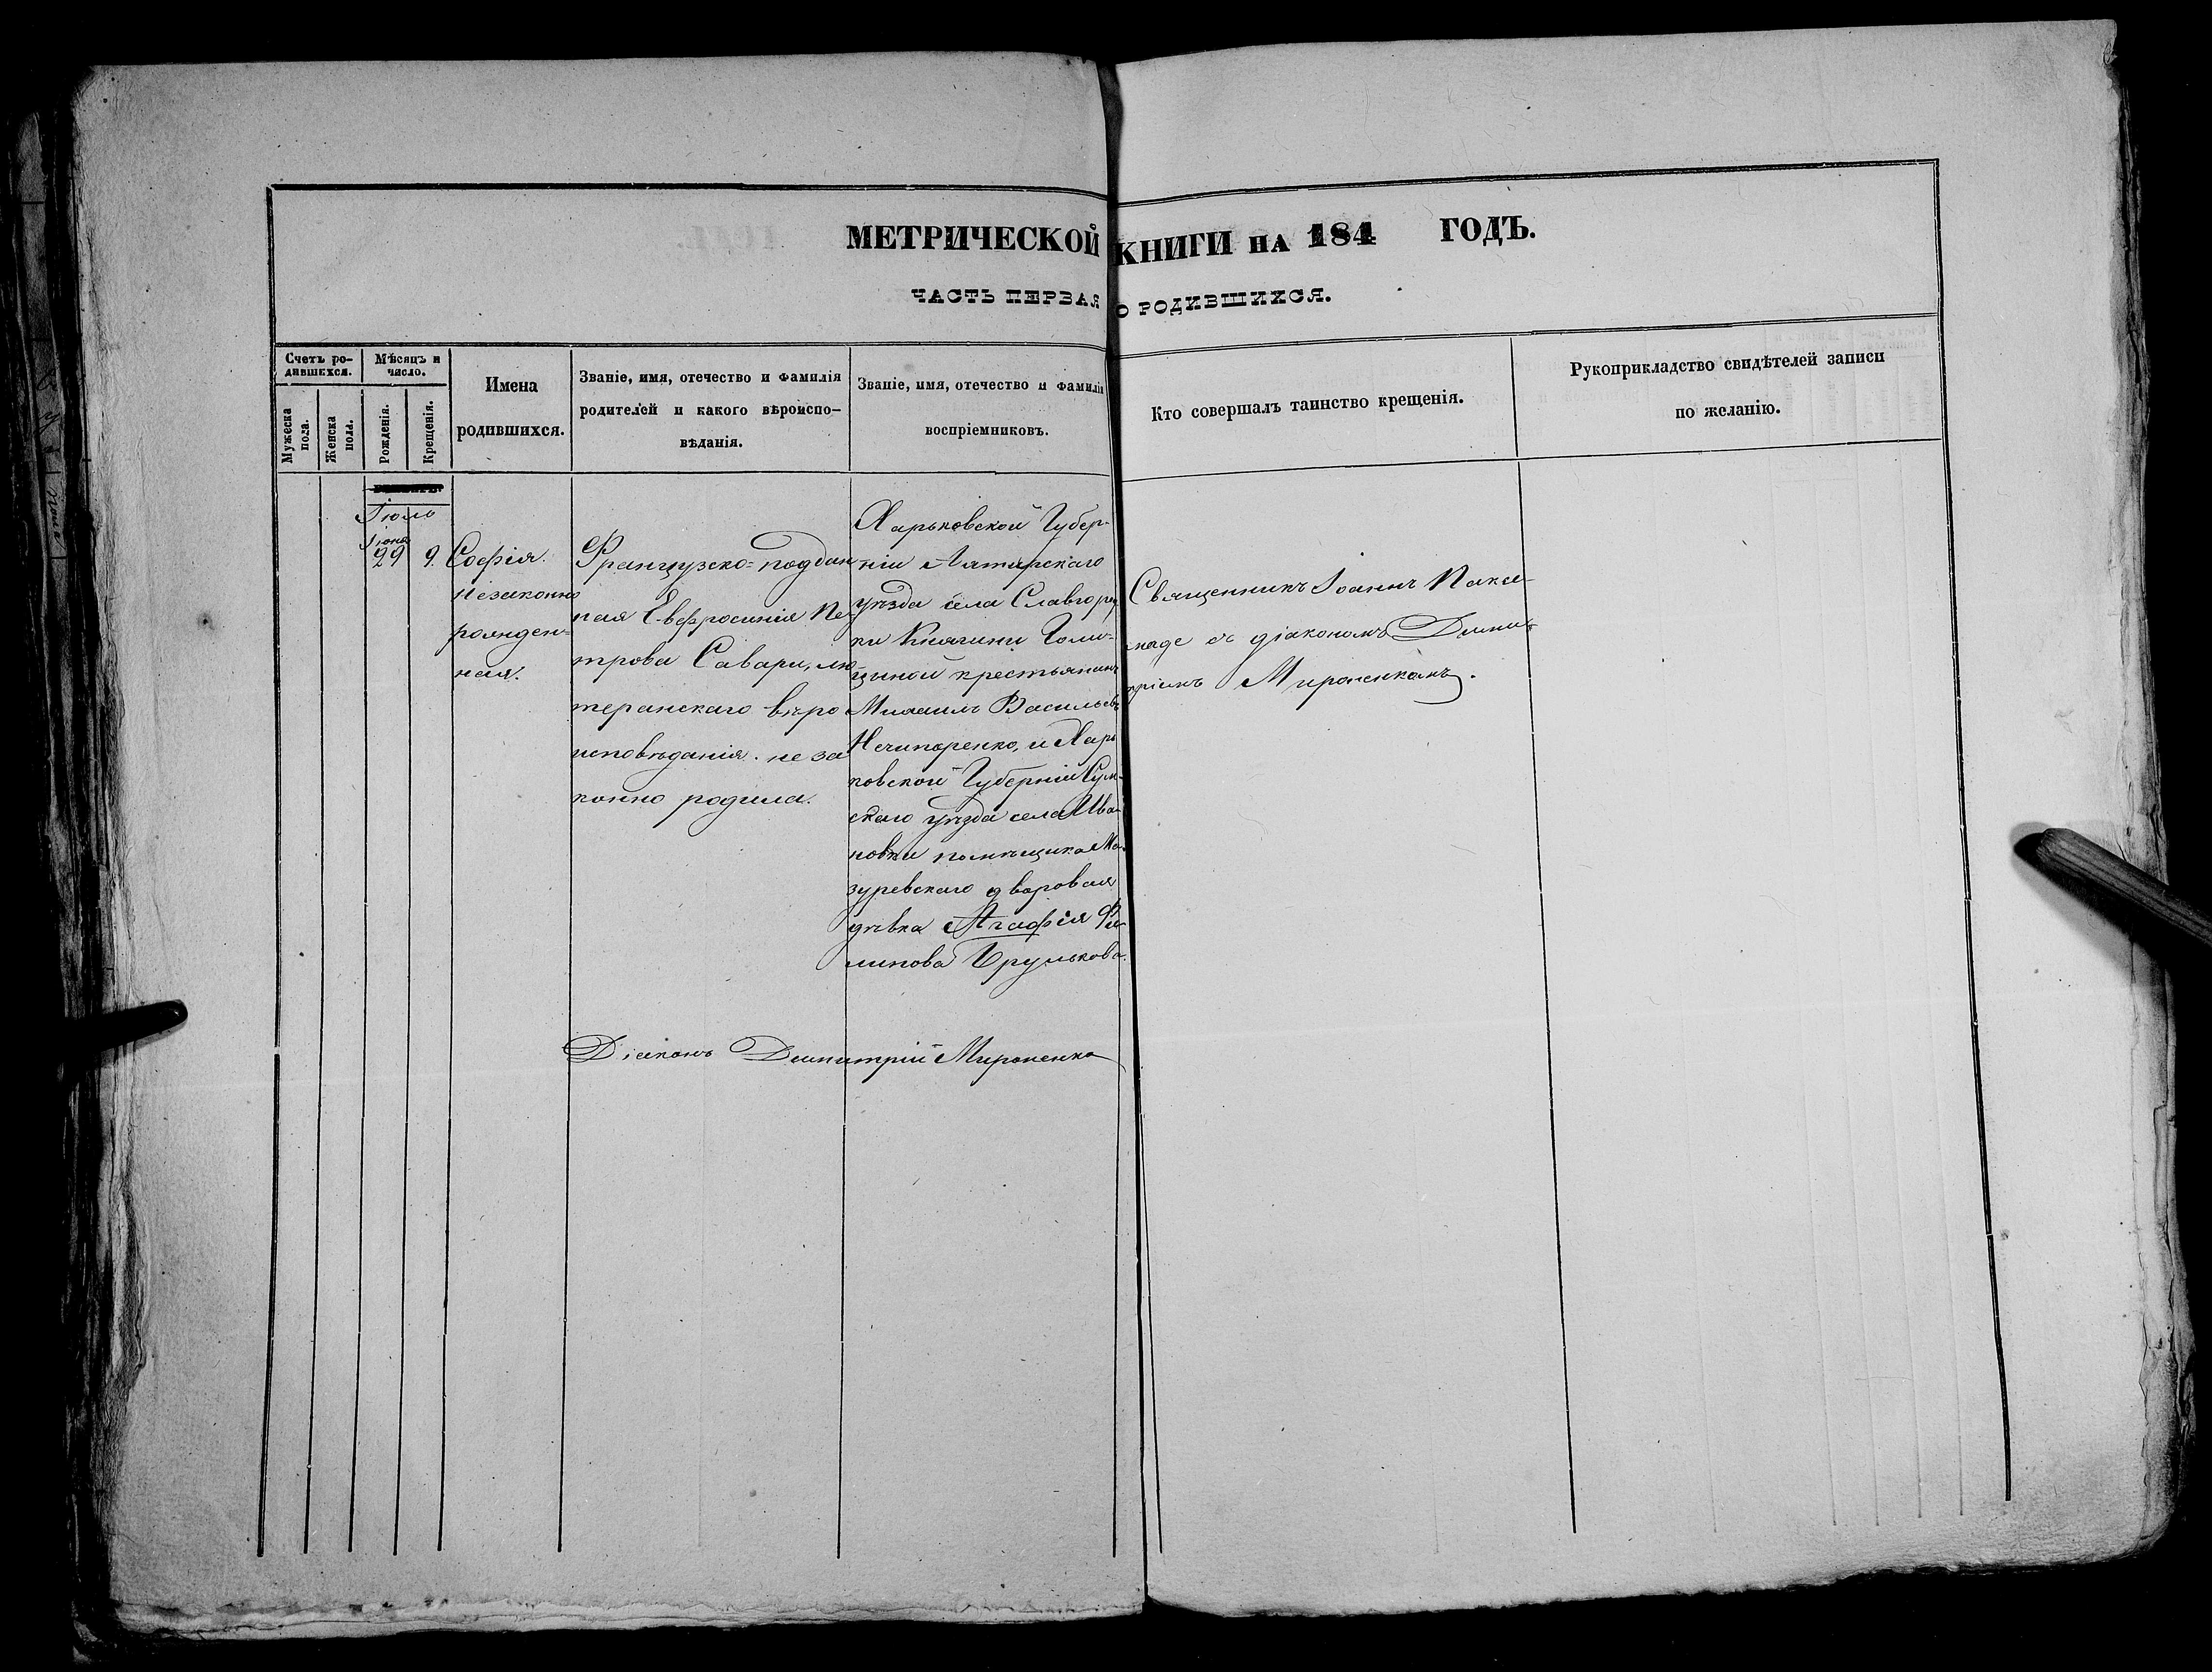 МЕТРИЧЕСКОЙ КНИГИ НА 184 ГОДЪ.
ЧАСТЬ ПЕРВАЯ О РОДИВШИХСЯ.
Счетъ ро-
дившихся.
Мужеска пола.
Женска пола.
Мѣсяцъ и
число.
Рожденія.
Крещенія.
Имена
родившихся.
Званіе, имя, отечество и фамилія
родителей и какого вѣроиспо-
вѣданія.
Званіе, имя, отечество и фамилія
воспріемниковъ.
Кто совершалъ таинство крещенія.
Рукоприкладство свидѣтелей записи
по желанію.
Іюль
Іюня
29 9.
Софія.
незаконно
рожден=
ная.
Французско=поддан
ная Евфросинія Пе-
трова Савари, лю
теранскаго вѣро
исповѣданія. неза
конно родила.
Харьковской Губер-
ніи Ахтырскаго
уѣзда села Славгород
ки Княгини Голи=
цыной крестьянинъ
Михаилъ Васильевъ
Нечипоренко, и Харь
ковской Губерніи Сум-
скаго уѣзда села Ива
новки помѣщика Ма
зуревскаго дворовая
дѣвка Агафія Фи
липова Брулькова.
Священникъ Іоаннъ
съ діакономъ Дими
тріемъ Мироненкомъ.
Діаконъ Димитрій Мироненко